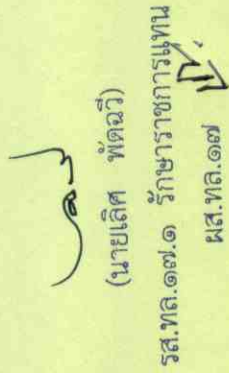 (นายเลิศ พัดฉวี)
รส.ทล.๑๗.๑ รักษาราชการแทน
ผส.ทล.๑๗